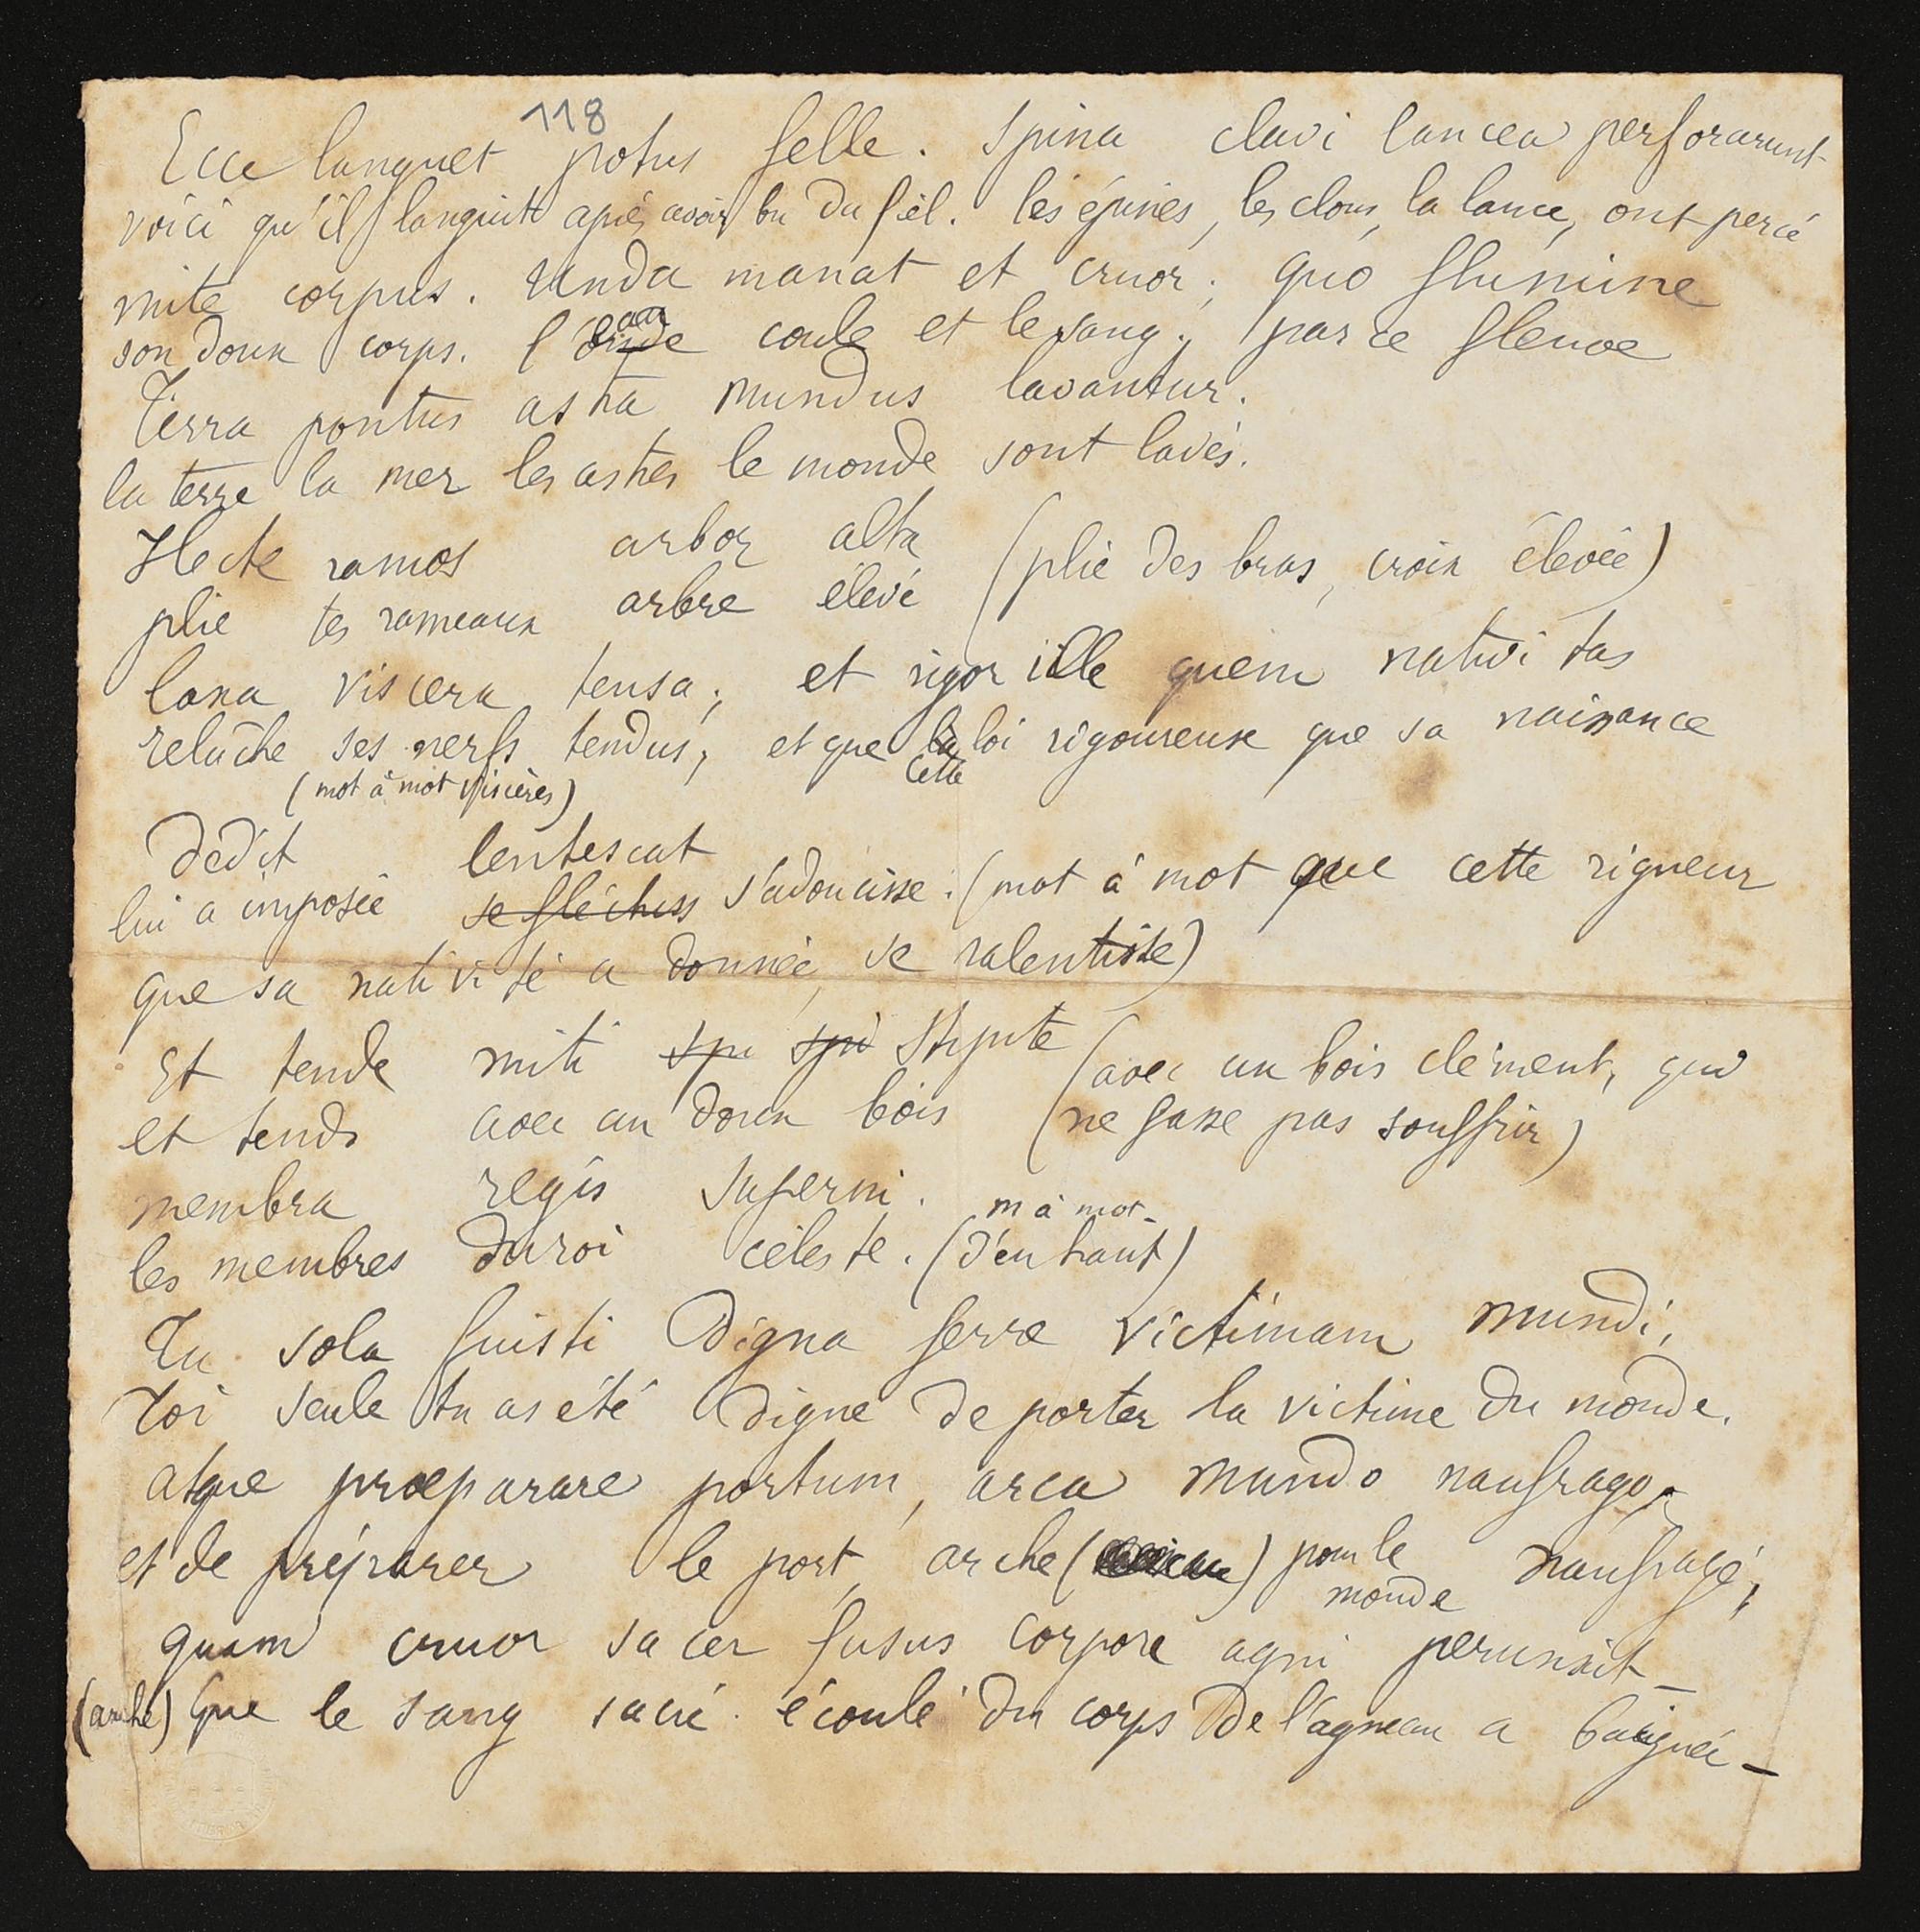 118
Ecce languet potus felle. Spina clavi lancea perforarunt
voici qu'il languit après avoir bu du fiel. les épines, les clous, la lance, ont percé
mite corpus. Unda manat et cruor; quo flumine
eau
son doux corps. l'onde coule et le sang; par ce fleuve
Terra pontus astra mundus lavantur.
la terre la mer les astres le monde sont lavés.
Flecte ramos arbor alta (plie des bras, croix élevée)
plie tes rameaux arbre élevé
laxa viscera tensa; et rigor ille quem nativitas
relâche ses nerfs tendus, et que la loi rigoureuse que sa naissance
(mot à mot viscères) cette
dedit lentescat
lui a imposée se fléchiss s'adoucisse. (mot à mot que cette rigueur
que sa nativité a donnée, se ralentisse)
Et tende miti spi spi stipite (avec un bois clément, qui
et tends avec un doux bois (ne fasse pas souffrir)
membra regis superni. m à mot
les membres du roi céleste. (d'en haut)
Tu sola fuisti digna ferre victimam mundi,
Toi seule tu as été digne de porter la victime du monde.
atque præparare portum, arca mundo naufrago,
et de préparer le port, arche ( ) pour le monde naufragé,
quam cruor sacer fusus corpore agni perunxit_
(arche) Que le sang sacré écoulé du corps de l'agneau a baignée_